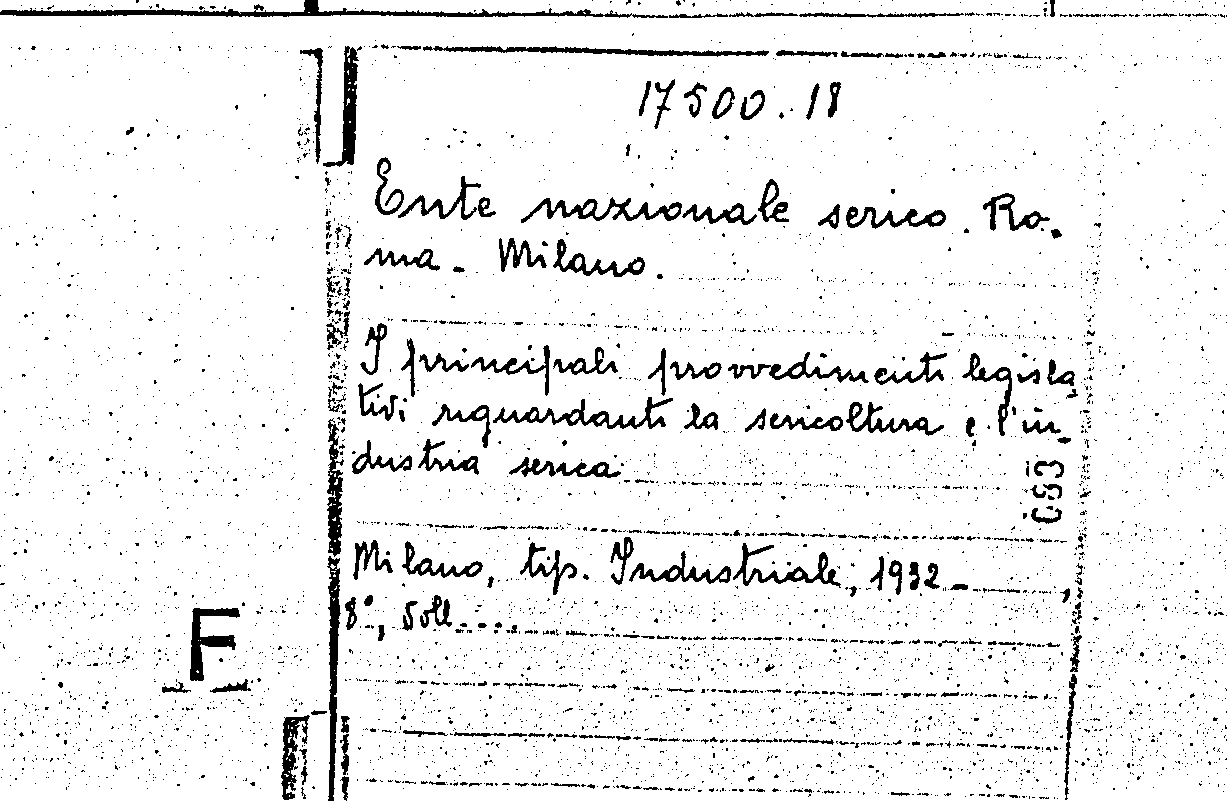 17500.18
Ente nazionale serico. Ro-
ma - Milano.
I principali provvedimenti legisla
tivi riguardanti la sericoltura e l'in-
dustria serica
083
Milano, tip. Industriale, 1932 - ,
8°, voll. ...
F